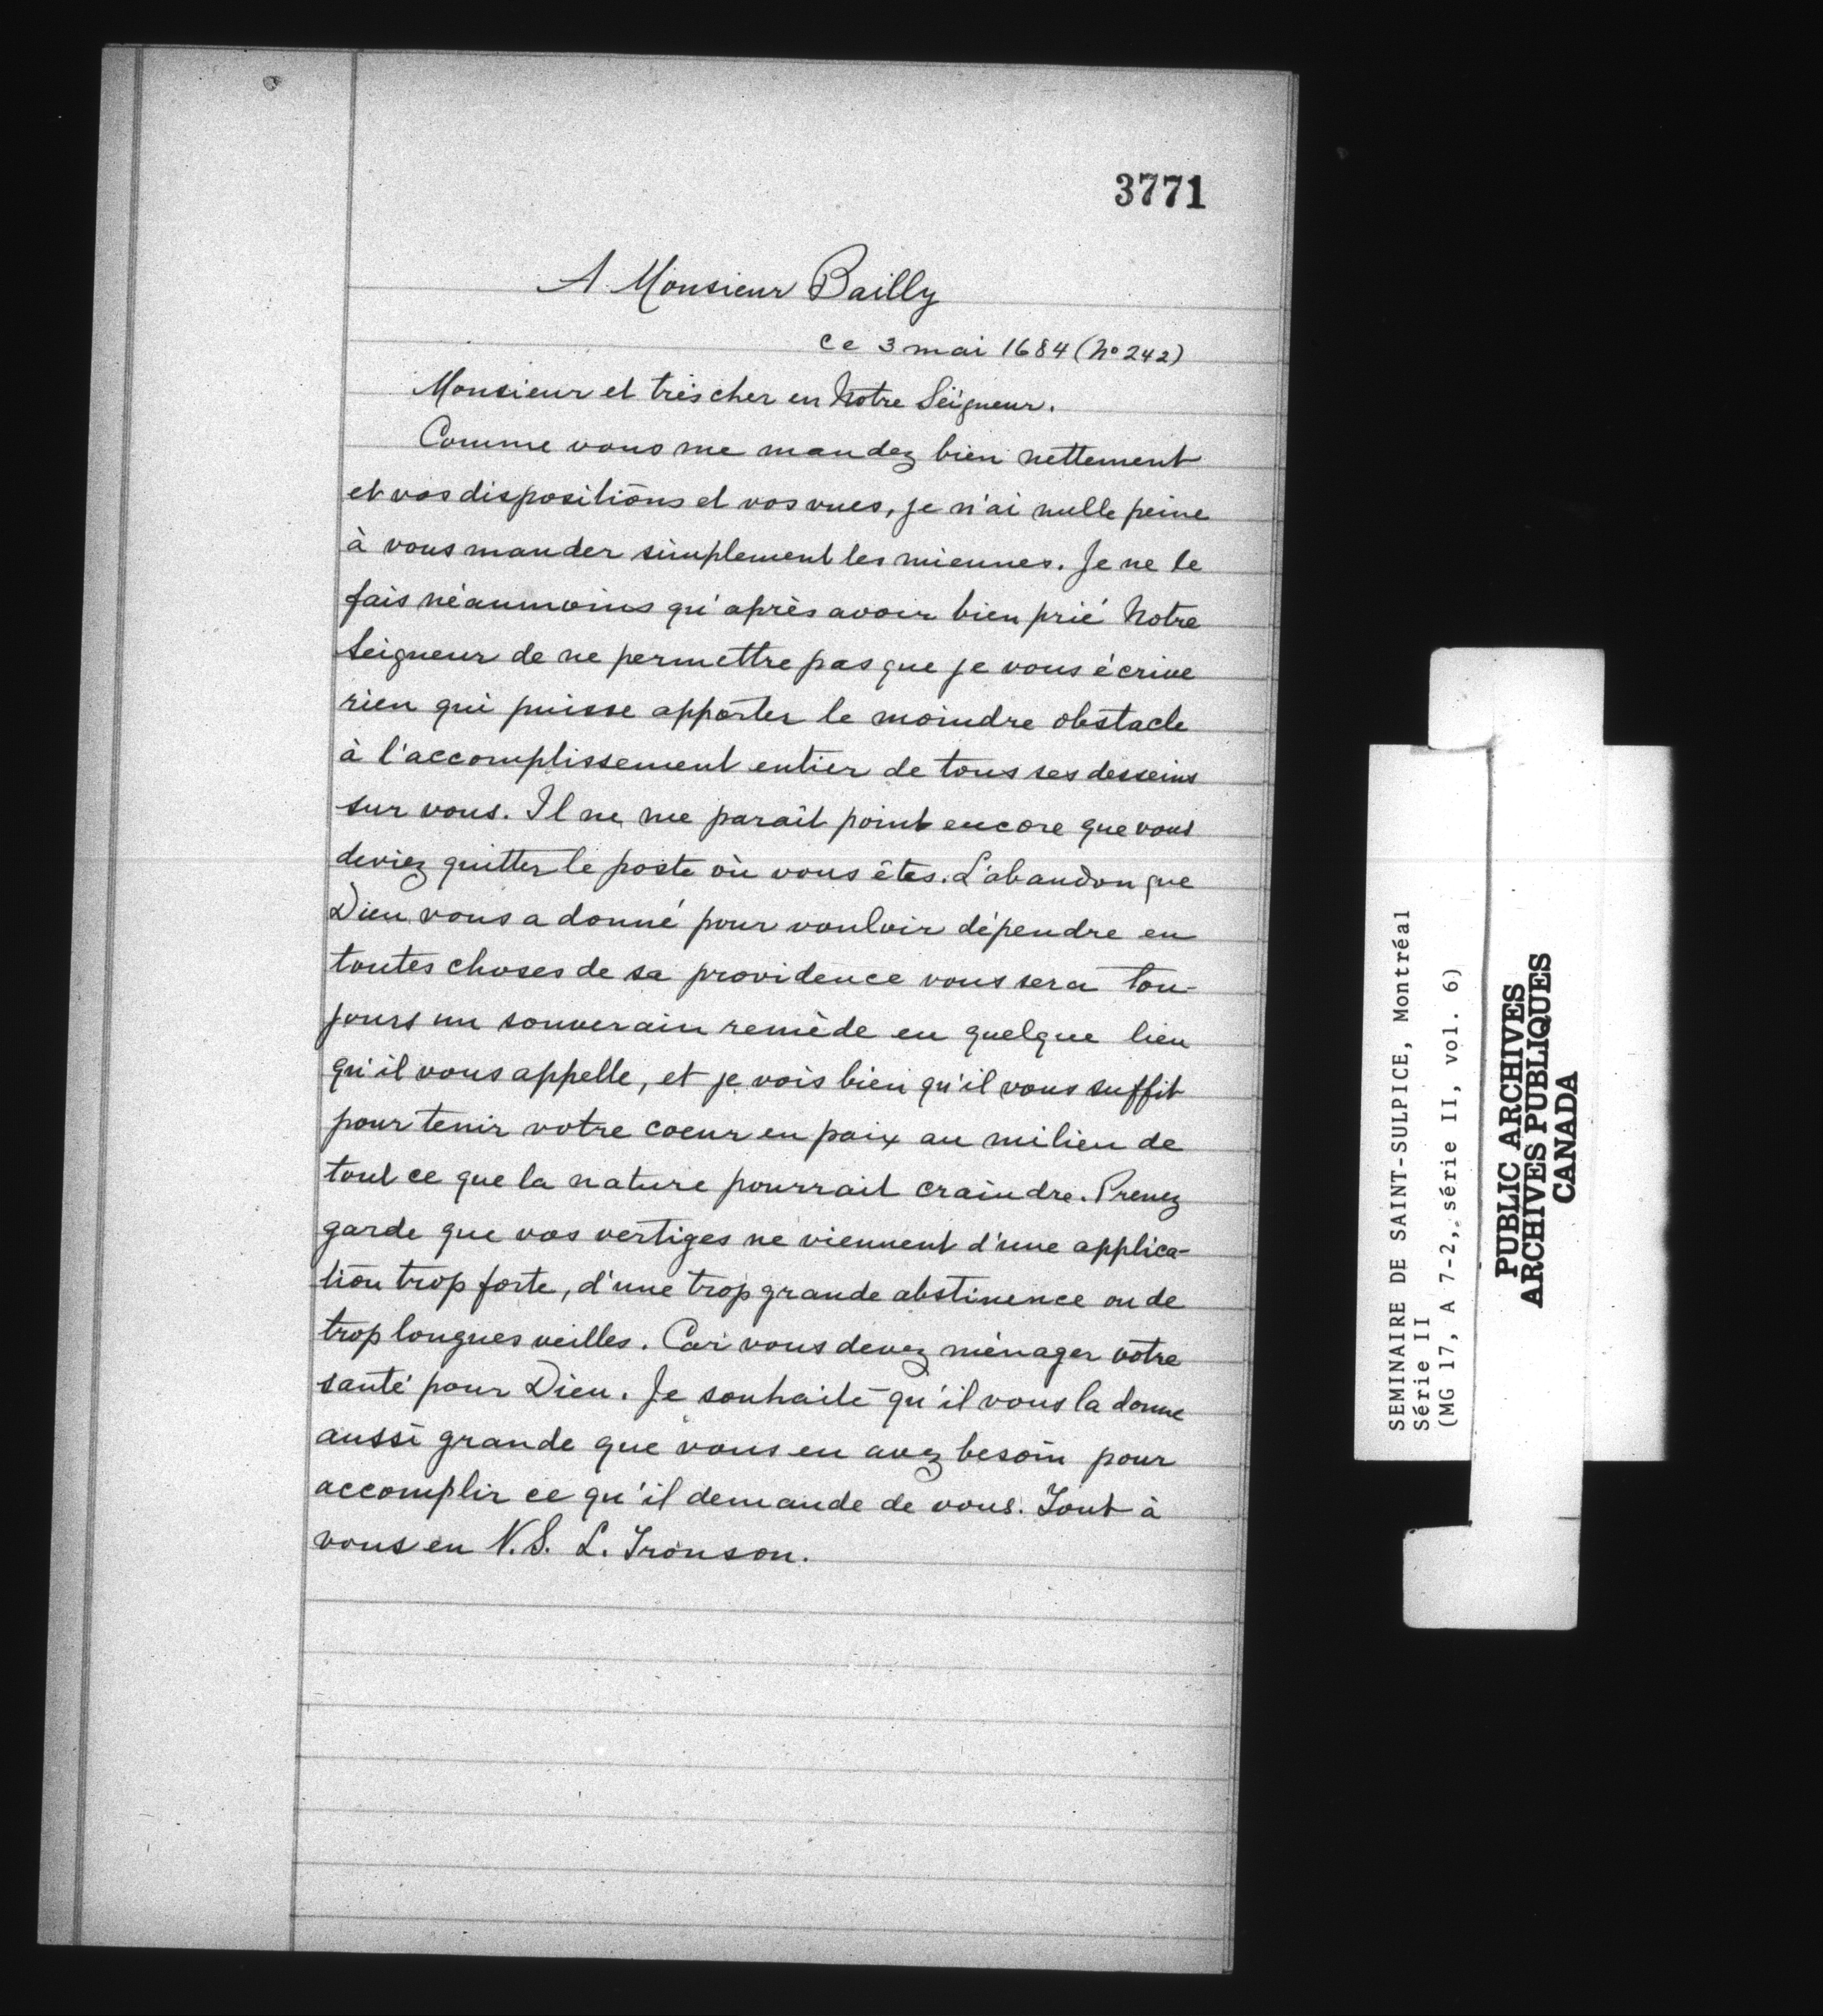 3771
A Monsieur Bailly
ce 3 mai 1684 (No 242)
Monsieur et très cher en Notre Seigneur.
Comme vous me mandez bien nettement
et vos dispositions et vos vues, je n'ai nulle peine
à vous mander simplement les miennes. Je ne le
fais néanmoins qu'après avoir bien prié Notre
Seigneur de ne permettre pas que je vous écrive
rien qui puisse apporter le moindre obstacle
à l'accomplissement entier de tous ses desseins
sur vous. Il ne me parait point encore que vous
deviez quitter le poste où vous êtes. L'abandon que
Dieu vous a donné pour vouloir dépendre en
toutes choses de sa providence vous sera tou-
jours un souverain remède en quelque lieu
qu'il vous appelle, et je vois bien qu'il vous suffit
pour tenir votre coeur en paix au milieu de
tout ce que la nature pourrait craindre. Prenez
garde que vos vertiges ne viennent d'une applica-
tion trop forte, d'une trop grande abstinence ou de
trop longues veilles. Car vous devez ménager votre
santé pour Dieu. Je souhaite qu'il vous la donne
aussi grande que vous en avez besoin pour
accomplir ce qu'il demande de vous. Tout à
vous en N.S. L. Tronson.
SEMINAIRE DE SAINT-SULPICE, Montréal
Série II
(MG 17, A 7-2, série II, vol. 6)
PUBLIC ARCHIVES
ARCHIVES PUBLIQUES
CANADA